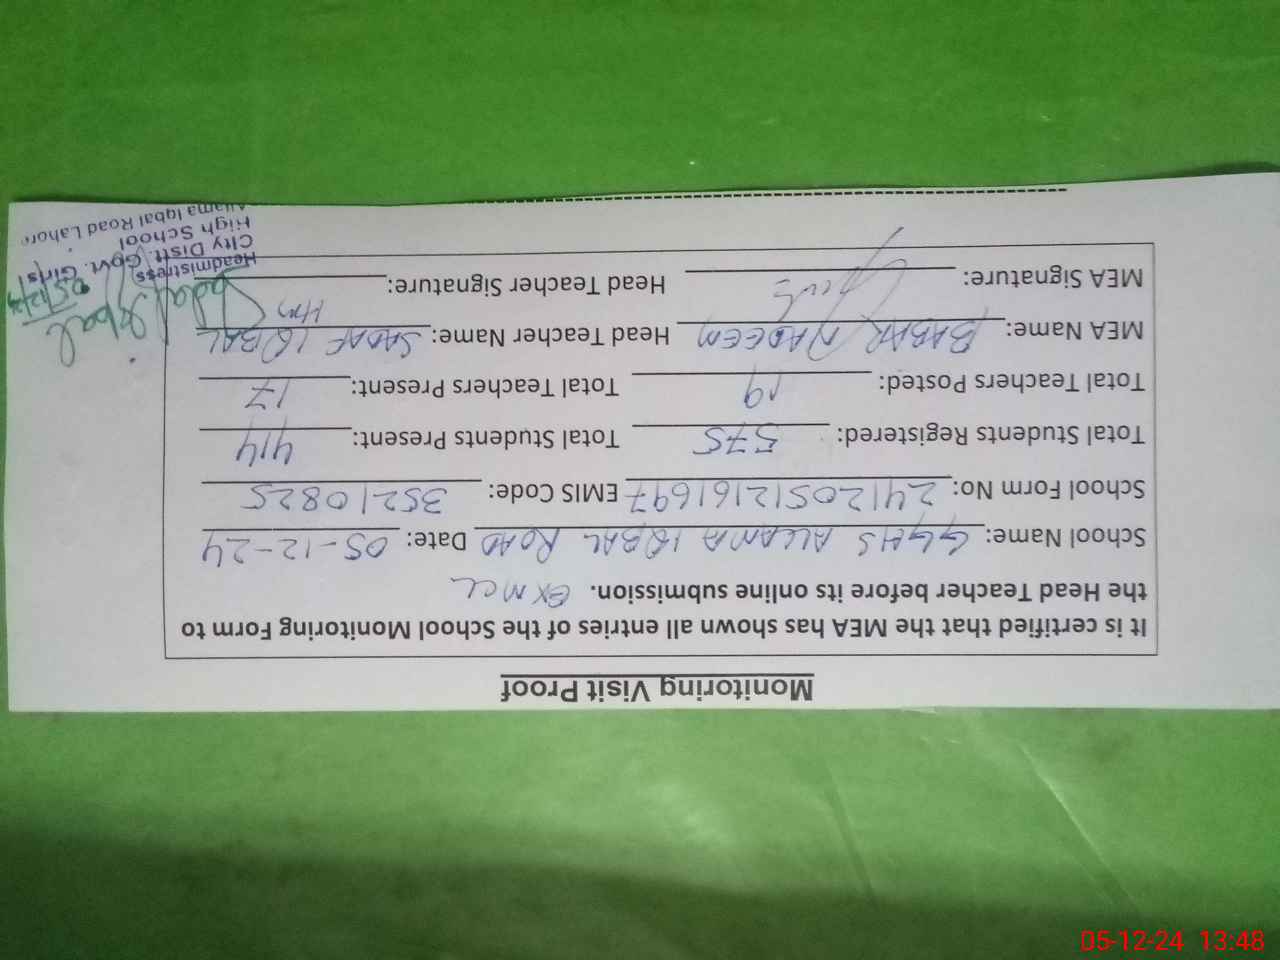 Monitoring Visit Proof
It is certified that the MEA has shown all entries of the School Monitoring Form to
the Head Teacher before its online submission. Ex MCL
School Name: GGHS ALLAMA IQBAL ROAD Date: 05-12-24
School Form No: 24120512161697 EMIS Code: 35210825
Total Students Registered: 575 Total Students Present: 414
Total Teachers Posted: 19 Total Teachers Present: 17
MEA Name: BABAR NADEEM Head Teacher Name: SADAF IQBAL
HM
MEA Signature: Head Teacher Signature: Sadaf Iqbal
05/12/24
Headmistress
City Distt. Govt. Girls
High School
Allama Iqbal Road Lahore
05-12-24 13:48